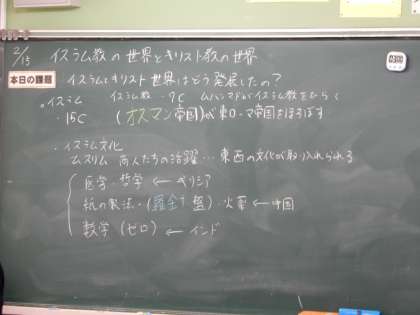 2/15 イスラム教の世界とキリスト教の世界
本日の課題 イスラムとキリスト世界はどう発展したの?
・イスラム イスラム教・7C ムハンマドがイスラム教をひらく
・15C (オスマン帝国)が東ローマ帝国をほろぼす
・イスラム文化
ムスリム商人たちの活躍…東西の文化が取り入れられる
医学・哲学 ← ギリシア
紙の製法・(羅針盤)・火薬 ← 中国
数学(ゼロ) ← インド